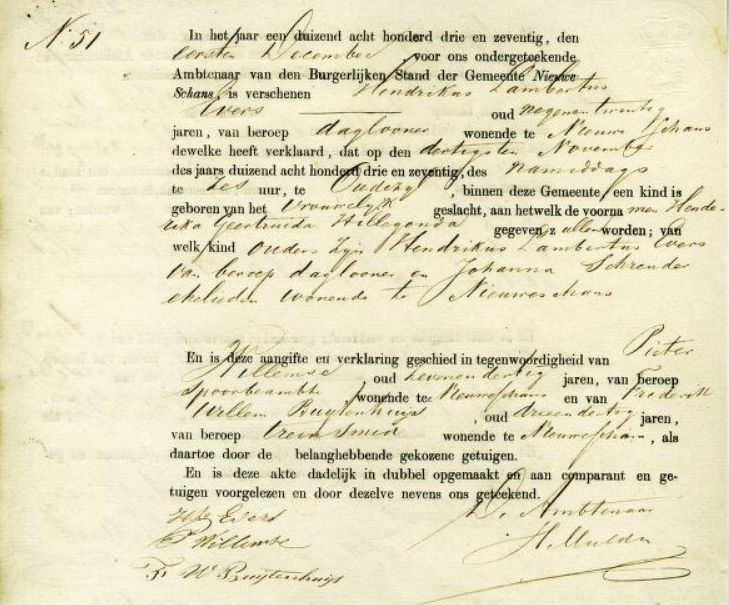 N. 51
In het jaar een duizend acht honderd drie en zeventig, den
eersten December, voor ons ondergeteekende
Ambtenaar van den Burgerlijken Stand der Gemeente Nieuwe
Schans, is verschenen Hendrikus Lambertus
Evers oud negenentwintig
jaren, van beroep daglooner wonende te Nieuwe Schans
dewelke heeft verklaard, dat op den dertigsten November
des jaars duizend acht honderd drie en zeventig, des namiddags
te zes uur, te Oudezyl, binnen deze Gemeente, een kind is
geboren van het vrouwelyk geslacht, aan hetwelk de voornamen Hende-
rika Geertruida Hillegonda gegeven zullen worden; van
welk kind ouders zyn Hendrikus Lambertus Evers
van beroep daglooner en Johanna Schreuder
echelieden wonende te Nieuweschans
En is deze aangifte en verklaring geschied in tegenwoordigheid van Pieter
Willemse oud zevenendertig jaren, van beroep
spoorbeambte, wonende te Nieuweschans en van Frederik
Willem Buytenhuijs, oud drieendertig jaren,
van beroep treinsmid wonende te Nieuweschans, als
daartoe door de belanghebbende gekozene getuigen.
En is deze akte dadelijk in dubbel opgemaakt en aan comparant en ge-
tuigen voorgelezen en door dezelve nevens ons geteekend.
De Ambtenaar
Evers
P Willemse
H. Mulder
F W Buijtenhuijs